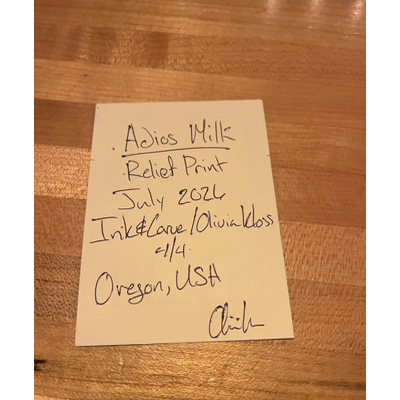 Adios Milk
Relief Print
July 2026
Ink & Carve/Olivia Kloss
4/4
Oregon, USA